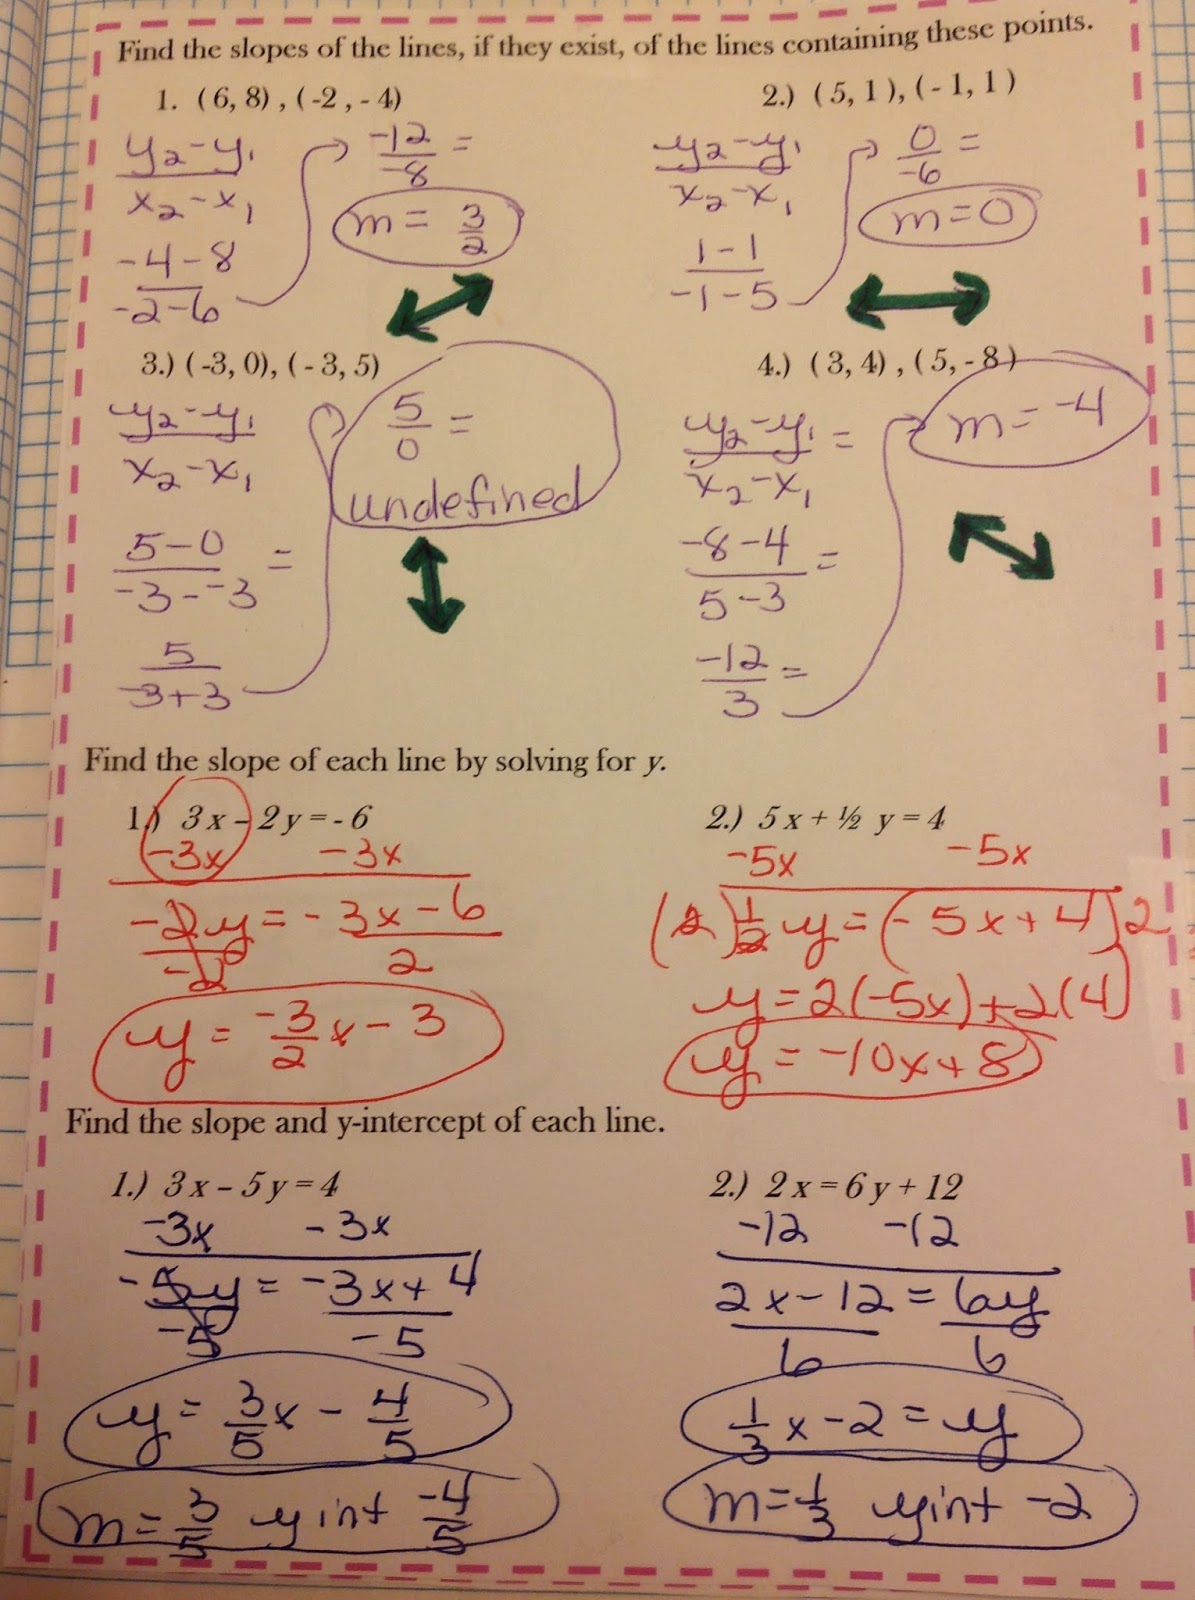 Find the slopes of the lines, if they exist, of the lines containing these points.
1. (6, 8), (-2, -4)
y₂-y₁
x₂-x₁
-4-8
-2-6
-12 =
-8
m = 3/2
2.) (5, 1), (-1, 1)
y₂-y₁
x₂-x₁
1-1
-1-5
0 =
-6
m=0
3.) (-3, 0), (-3, 5)
y₂-y₁
x₂-x₁
5-0 =
-3--3
5
-3+3
5 =
0
undefined
4.) (3, 4), (5, -8)
y₂-y₁ =
x₂-x₁
-8-4 =
5-3
-12 =
3
m = -4
Find the slope of each line by solving for y.
1.) 3x - 2y = -6
-3x -3x
-2y = -3x-6
-2 2
y = -3/2 x - 3
2.) 5x + ½ y = 4
-5x -5x
(2) 1/2 y = (-5x+4)2
y = 2(-5x)+2(4)
y = -10x+8
Find the slope and y-intercept of each line.
1.) 3x - 5y = 4
-3x -3x
-5y = -3x+4
-5 -5
y = 3/5 x - 4/5
m = 3/5 y int -4/5
2.) 2x = 6y + 12
-12 -12
2x-12 = 6y
6 6
1/3 x - 2 = y
m = 1/3 yint -2